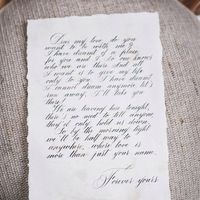 Dear my love, do you
want to be with me?
I have dreamt of a place
for you and I. No one knows
who we are there. And all
I want is to give my life
only to you. I have dreamt
I cannot dream anymore let's
run away, I'll take you
there!
We are leaving here tonight,
there's no need to tell anyone
they'd only hold us down.
So by the morning light
we'll be half way to
anywhere, where love is
more than just your name.
Forever yours